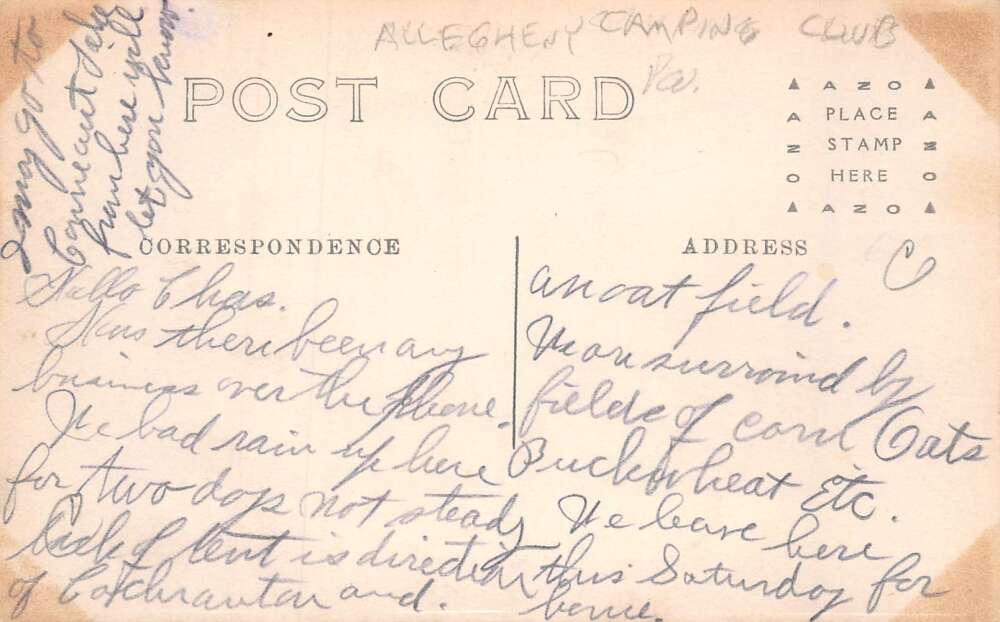 ALLEGHENY CAMPING CLUB
Pa.
POST CARD
AZO
PLACE
STAMP
HERE
AZO
I may go to
Conneaut Lake
from here will
let you know.
CORRESPONDENCE
Hello Chas.
Has there been any
business over the Phone.
We had rain up here
for two days not steady
Back of tent is direction
of Cochranton and.
ADDRESS
C
an oat field.
We are surround by
fields of corn Oats
Buckwheat Etc.
We leave here
this Saturday for
home.